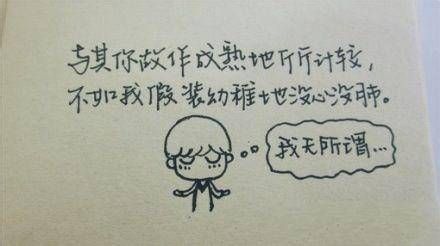 与其你故作成熟地斤斤计较，
不如我假装幼稚地没心没肺。
我无所谓...